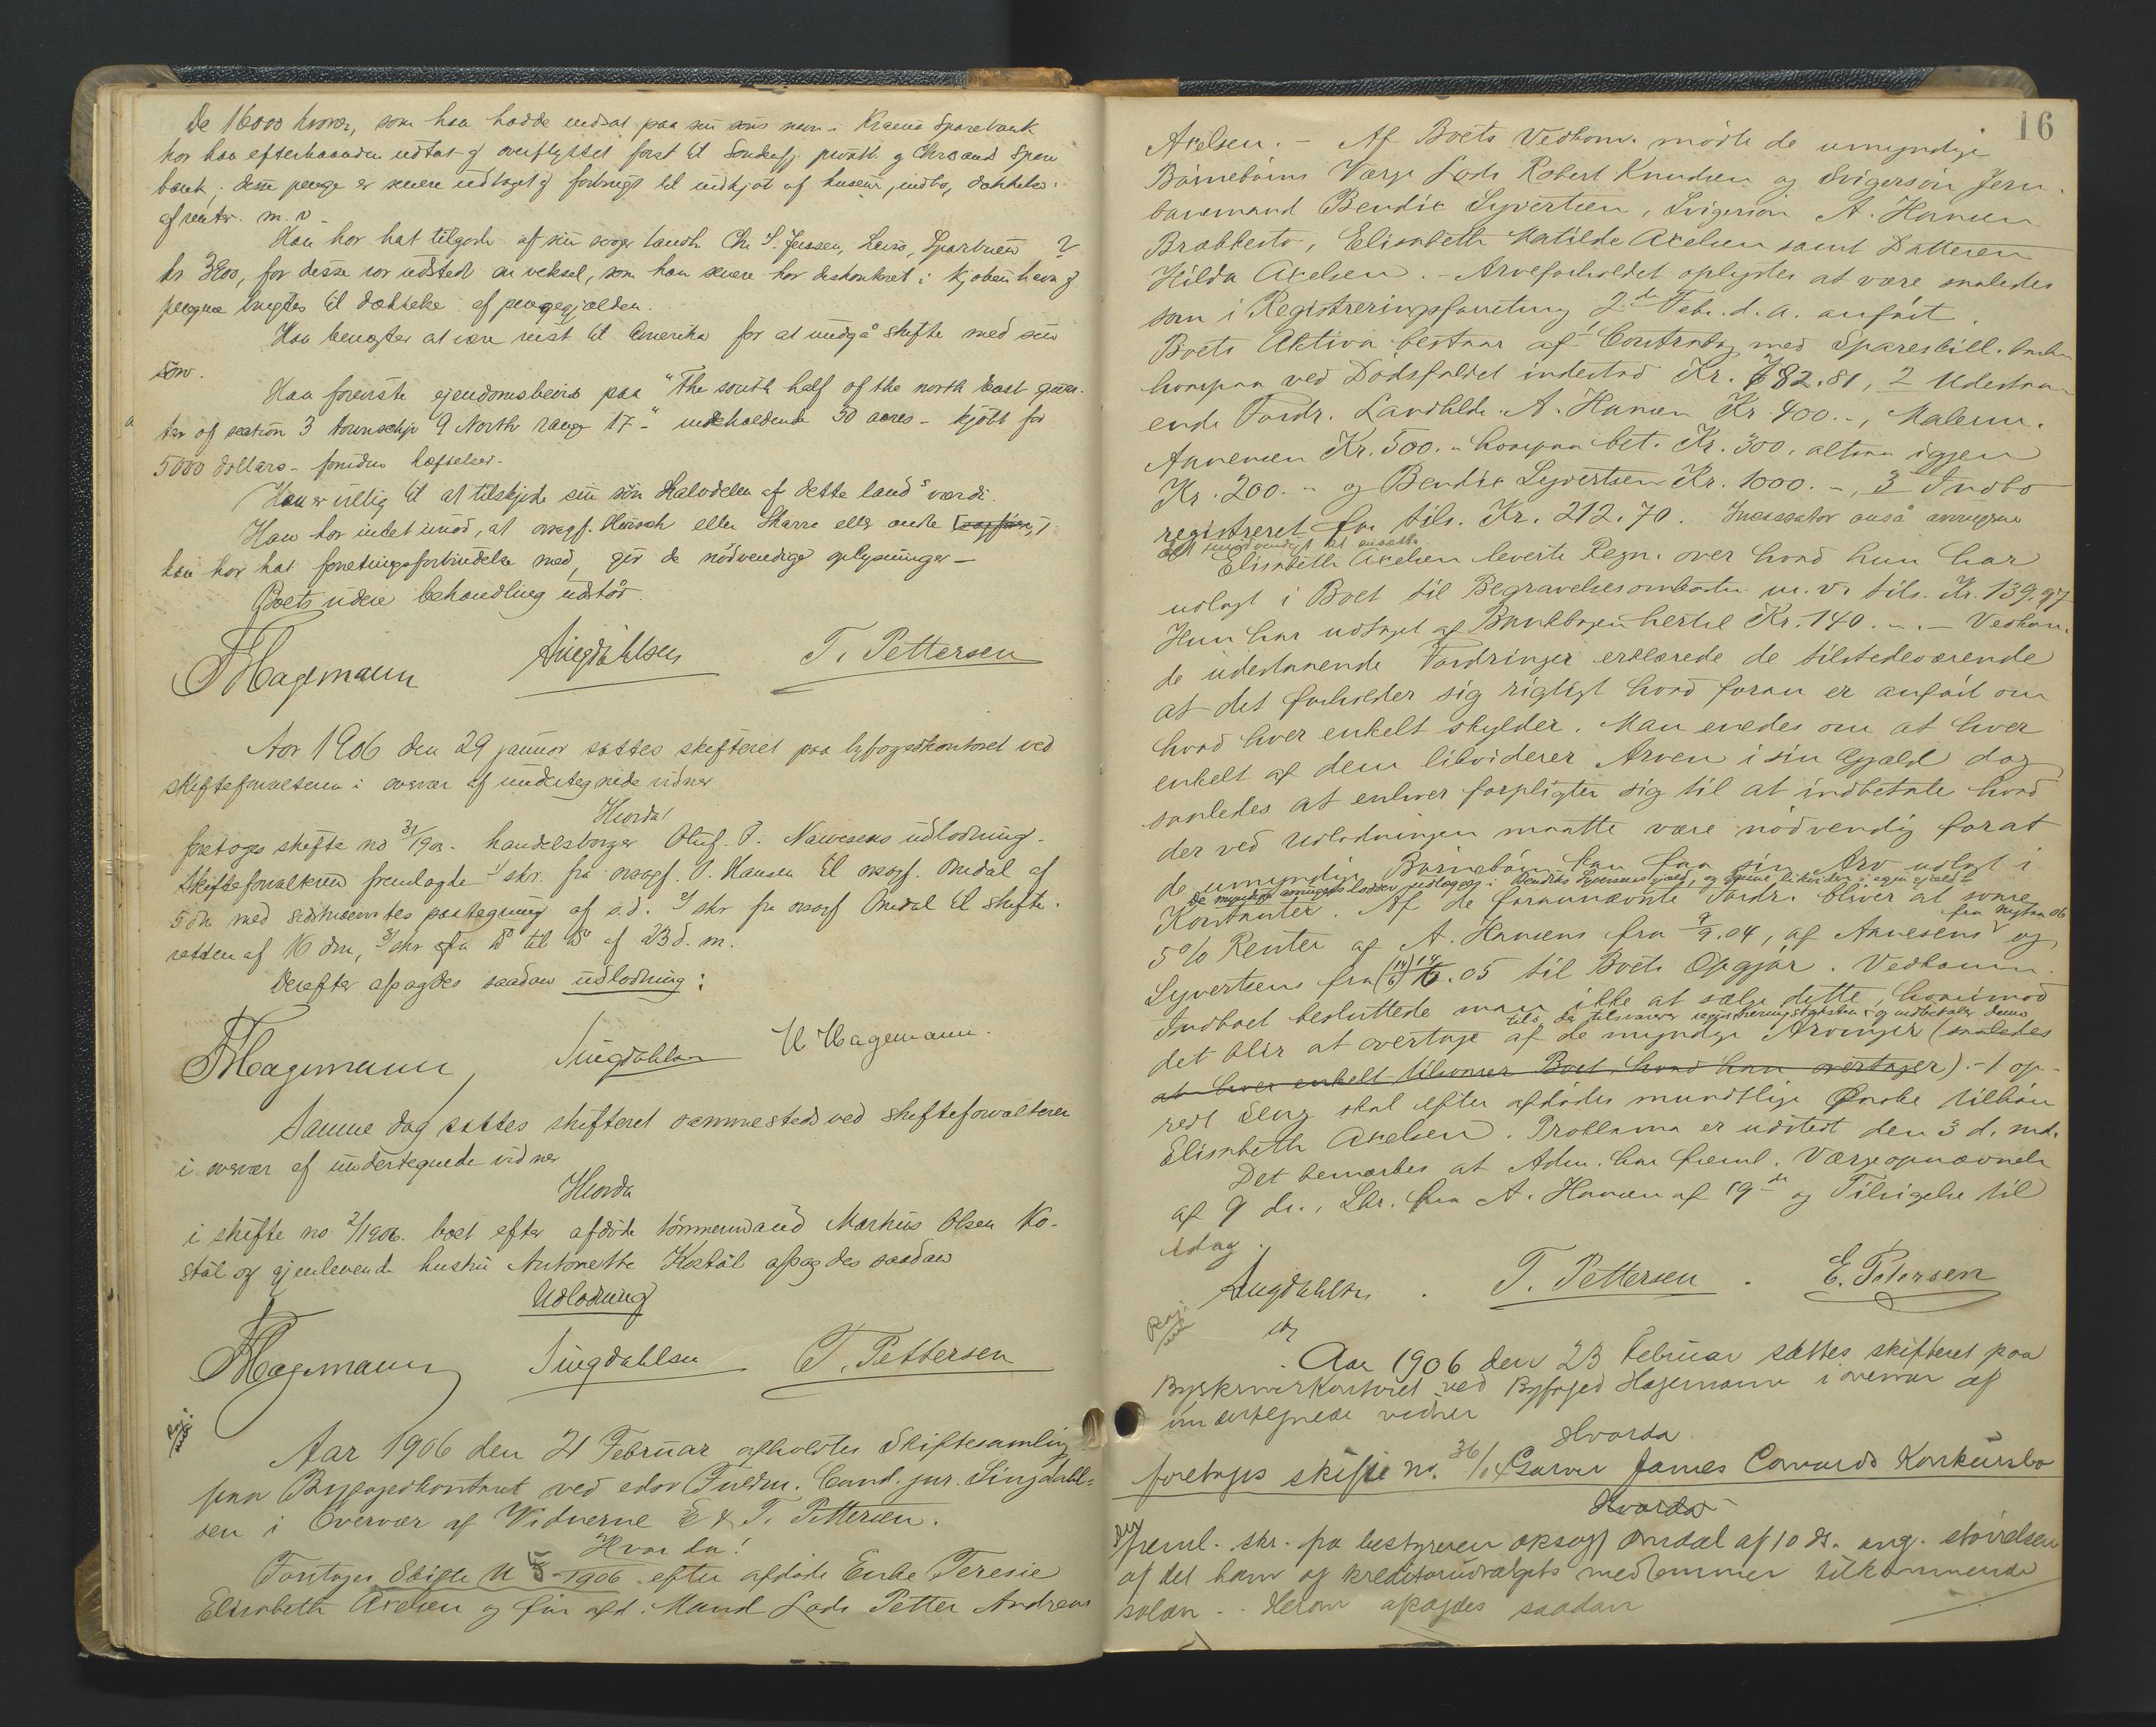 De 16000 kroner, som han hadde indsat paa sin søns navn i Kragerø Sparebank
har han efterhaanden udtat og overflyttet først til Sønderfj. privatb. og Chrsands Spare
bank; disse penge er senere udtaget og forbrugt til indkjøb af husene, indbo, dækkelse
af renter m. v.
Han har hat tilgode af sin svoger landh. Chr. S. Jenssen,
kr 3800, for disse var udstedt en veksel, som han senere har diskonteret i Kjøbenhavn og
pengene brugtes til dækkelse af pengegjælden.
Han benægter at være reist til Amerika for at undgå skifte med sin
søn.
Han foreviste eiendomsbevis paa "The south half of the north east quar-
ter of section 3 township 9 North range 17 -" indeholdende 80 acres - kjøbt for
5000 dollars - foruden hæftelser.
Han er villig til at tilskjøde sin søn Halvdelen af dette land's værdi.
Han har intet imod, at orsagf. eller Skarre eller andre
han har hat forretningsforbindelse med, gir de nødvendige oplysninger -
Boets videre behandling udstår.
Hagemann Singdahlsen T. Pettersen
Aar 1906 den 29 januar sattes skifteret paa byfogedkontoret ved
skifteforvalteren i overvær af undertegnede vidner
Hvorda
foretoges skifte no 31/190 . handelsborger Oluf. P. udlodning -
Skifteforvalteren fremlagde 1/ skr. fra orsagf. O. Hansen til orsagf. Omdal af
5 dm med paategning af s.d. 2/ skr fra orsagf Omdal til skifte-
retten af 16 dm, 3/ skr fra do til do af 23 d. m.
Derefter afsagdes saadan udlodning:
Hagemann Singdahlsen H Hagemann.
Samme dag sattes skifteret sammesteds ved skifteforvalteren
i overvær af undertegnede vidner
Hvorda
i skifte no 2/1906. boet efter afdøde tømmermand Markus Olsen Ko-
støl og gjenlevende hustru Antonette Kostøl afsagdes saadan
Udlodning
Hagemann Singdahlsen T. Pettersen
Aar 1906 den 21 Februar afholdtes Skiftesamling
paa Byfogedkontoret ved edsv. Fuldm. Cand. jur. Singdahl-
sen i Overvær af Vidnerne E & T. Pettersen.
Hvorda!
Foretoges Skifte N 5 - 1906 efter afdøde Enke Teresie
Elisabeth Axelsen og før afd. Mand Lods Petter Andreas
16
Axelsen. - Af Boets Vedkom. mødte de umyndige
Børnebørns Værge Lods Robert Knudsen og Svigersøn Jern-
banemand Bendix Syvertsen, Svigersøn A. Hansen
Brakkesto, Elisabeth Matilde Axelsen samt Datteren
Hilda Axelsen. - Arveforholdet oplystes at være saaledes
som i Registreringsforretning 2den Febr. d. a. anført.
Boets Aktiva bestaar af 1 Contrabog med Sparesk.
hvorpaa ved Dødsfaldet indestod Kr. 782.81, 2 Udestaa-
ende Fordr. Landhdl. A. Hansen Kr. 400.-, Malerm.
Annensen Kr. 500.- hvorpaa bet. Kr. 300, altsaa igjen
Kr. 200.- og Bendix Syvertsen Kr. 1000.-, 3 Indbo
registreret for tils. Kr. 212.70. anså arvingerne
det unødvendigt at ansætte
Elisabeth Axelsen leverte Regn. over hvad hun har
udlagt i Boet til Begravelsesomkostn. m. v. tils. Kr. 139.97
Hun har udtaget af Bankbogen hertil Kr. 140.-. - Vedkom.
de udestaaende Fordringer erklærede de tilstedeværende
at det forholder sig rigtigt hvad foran er anført om
hvad hver enkelt skylder. Man enedes om at hver
enkelt af dem likviderer Arven i sin Gjæld dog
saaledes at enhver forpligter sig til at indbetale hvad
der ved Udlodningen maatte være nødvendig for at
de umyndige Børnebørn kan faa sin Arv udlagt i
De myndige arvingers lodder udlægges i Bendix Syvertsens gjæld, og denne likviderer i egen gjæld
Kontanter. Af de forannævnte Fordr. bliver at svare
fra Nytaar 06
5% Renter af A. Hansens fra 9/9.04, af Annesens og
Syvertsens fra (14/6) 14/6.05 til Boets Opgjør. Vedkomm.
Indboet besluttede man ikke at sælge dette, hvorimod
tils. der tilsvarer registreringstaksten og indbetaler denne
det blir at overtage af de myndige Arvinger (saaledes
at hver enkelt tilsvarer Boet hvad han overtager). - 1 op-
redt Seng skal efter afdødes mundtlige Ønske tilhøre
Elisabeth Axelsen. Proklama er udstedt den 3 d. md.
Det bemærkes at Adm. har freml. Værgeopnævnelse
af 9 ds., Skr. fra A. Hansen af 19de og Tilsigelse til
idag.
Singdahlsen. T. Pettersen. E. Petersen
Aar 1906 den 23 Februar sættes skifteret paa
Byskriverkontoret ved Byfoged Hagemann i overvær af
undertegnede vidner
Hvorda
foretoges skifte nr. 36/04 Garver James Cowards Konkursbo
Hvorda
der freml. skr. fra bestyreren orsagf Omdal af 10 ds. ang. størrelsen
af det ham og kreditorudvalgets medlemmer tilkommende
salær - . Herom afsagdes saadan